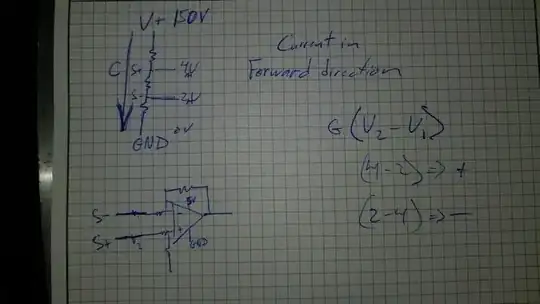 V+ 150V
C
S+
4V
S-
2V
0V
GND
Current in
Forward direction
G(V2-V1)
(4-2)=>+
(2-4)=>-
S-
S+
GND